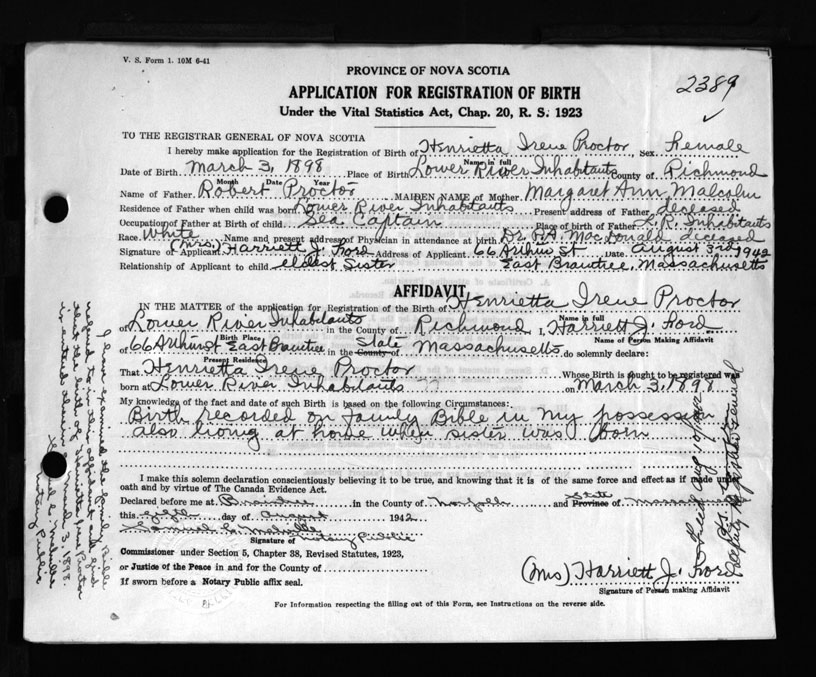 V. S. Form 1. 10M 6-41
2389
PROVINCE OF NOVA SCOTIA
APPLICATION FOR REGISTRATION OF BIRTH
Under the Vital Statistics Act, Chap. 20, R. S. 1923
TO THE REGISTRAR GENERAL OF NOVA SCOTIA
I hereby make application for the Registration of Birth of Henrietta Irene Proctor, Sex Female
Name in full
Date of Birth March 3, 1898 Place of Birth Lower River Inhabitants County of Richmond
Month Date Year
Name of Father Robert Proctor MAIDEN NAME of Mother Margaret Ann Malcolm
Residence of Father when child was born Lower River Inhabitants Present address of Father deceased
Occupation of Father at Birth of child Sea Captain Place of birth of Father L.R. Inhabitants
Race White Name and present address of Physician in attendance at birth Dr. P.A. MacDonald deceased
Signature of Applicant (Mrs) Harriett J. Ford Address of Applicant 66 Arthur St Date August 3rd 1942
Relationship of Applicant to child eldest Sister East Braintree, Massachusetts
AFFIDAVIT
IN THE MATTER of the application for Registration of the Birth of Henrietta Irene Proctor
Name in full
of Lower River Inhabitants in the County of Richmond I, Harriett J. Ford
Birth Place Name of Person Making Affidavit
of 66 Arthur St East Braintree in the County of State Massachusetts do solemnly declare:
Present Residence
That Henrietta Irene Proctor Whose Birth is sought to be registered was
born at Lower River Inhabitants on March 3, 1898
My knowledge of the fact and date of such Birth is based on the following Circumstances:
Birth recorded on family Bible in my possession
also living at home when sister was born
I make this solemn declaration conscientiously believing it to be true, and knowing that it is of the same force and effect as if made under
oath and by virtue of The Canada Evidence Act.
Declared before me at Braintree in the County of Norfolk and Province State of Massachusetts
this fifth day of August 1942
Samuel C. Melville Notary Public
Signature of
Commissioner under Section 5, Chapter 38, Revised Statutes, 1923,
or Justice of the Peace in and for the County of
If sworn before a Notary Public affix seal.
(Mrs) Harriett J. Ford
Signature of Person making Affidavit
For Information respecting the filling out of this Form, see Instructions on the reverse side.
I have examined the family Bible
referred to in this affidavit and find
that the birth of Henrietta Irene Proctor
is entered therein as March 3, 1898.
Samuel C. Melville
Notary Public
Deputy Registrar General